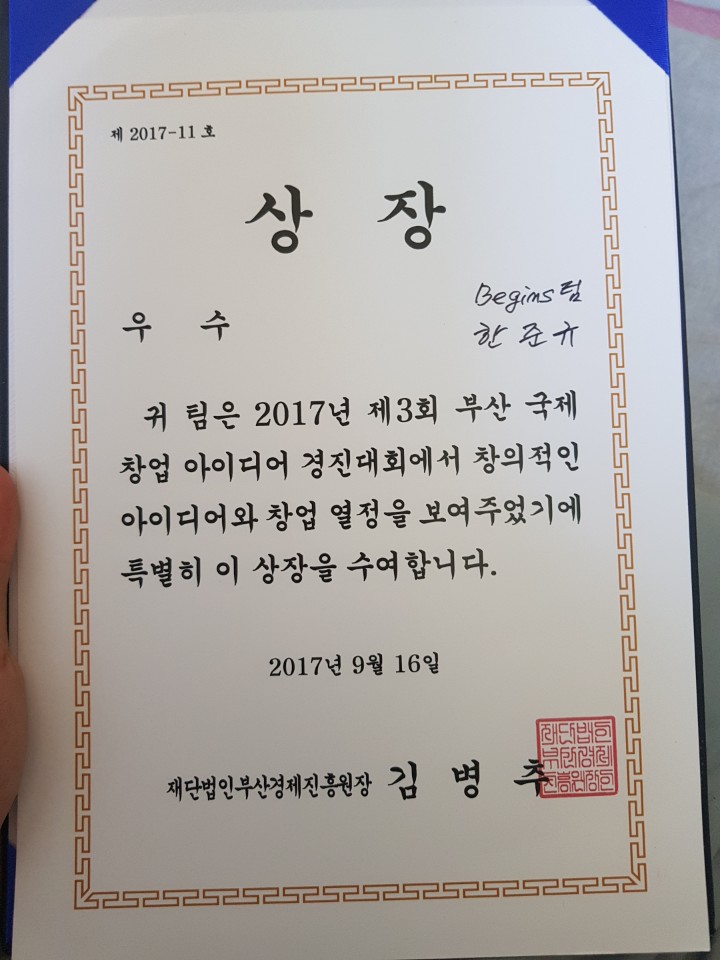 제 2017-11 호
상 장
Begins팀
우 수 한 준 규
귀 팀은 2017년 제3회 부산 국제
창업 아이디어 경진대회에서 창의적인
아이디어와 창업 열정을 보여주었기에
특별히 이 상장을 수여합니다.
2017년 9월 16일
재단법인부산경제진흥원장 김 병 추
재단법인
부산경제
진흥원장인